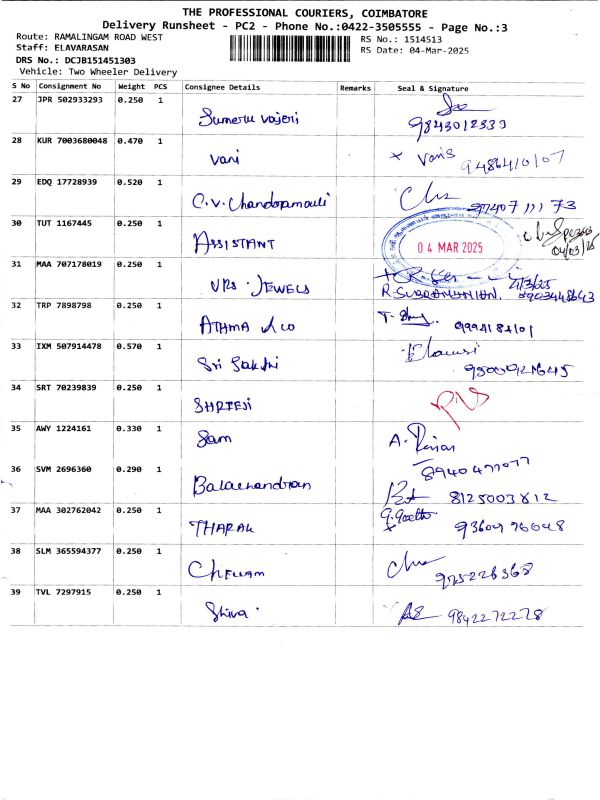 THE PROFESSIONAL COURIERS, COIMBATORE
Delivery Runsheet - PC2 - Phone No.:0422-3505555 - Page No.:3
Route: RAMALINGAM ROAD WEST
RS No.: 1514513
Staff: ELAVARASAN
RS Date: 04-Mar-2025
DRS No.: DCJB151451303
Vehicle: Two Wheeler Delivery
S No Consignment No Weight PCS Consignee Details Remarks Seal & Signature
27 JPR 502933293 0.250 1
9843012333
28 KUR 7003680048 0.470 1 Vani x Vanis 9486410107
29 EDQ 17728939 0.520 1 C.V. Chandramouli 97407 11173
30 TUT 1167445 0.250 1 ASSISTANT 04 MAR 2025 04/03/25
31 MAA 707178019 0.250 1 VRS JEWELS 4/3/25
R SUBRAMANIAN.
32 TRP 7898798 0.250 1 ATHMA
33 IXM 507914478 0.570 1 Sri Sakthi
34 SRT 70239839 0.250 1
35 AWY 1224161 0.330 1 Sam
36 SVM 2696360 0.290 1 Balachandran 8125003812
37 MAA 302762042 0.250 1 THARAK
38 SLM 365594377 0.250 1 CHELLAM
39 TVL 7297915 0.250 1 Shiva 9842272278